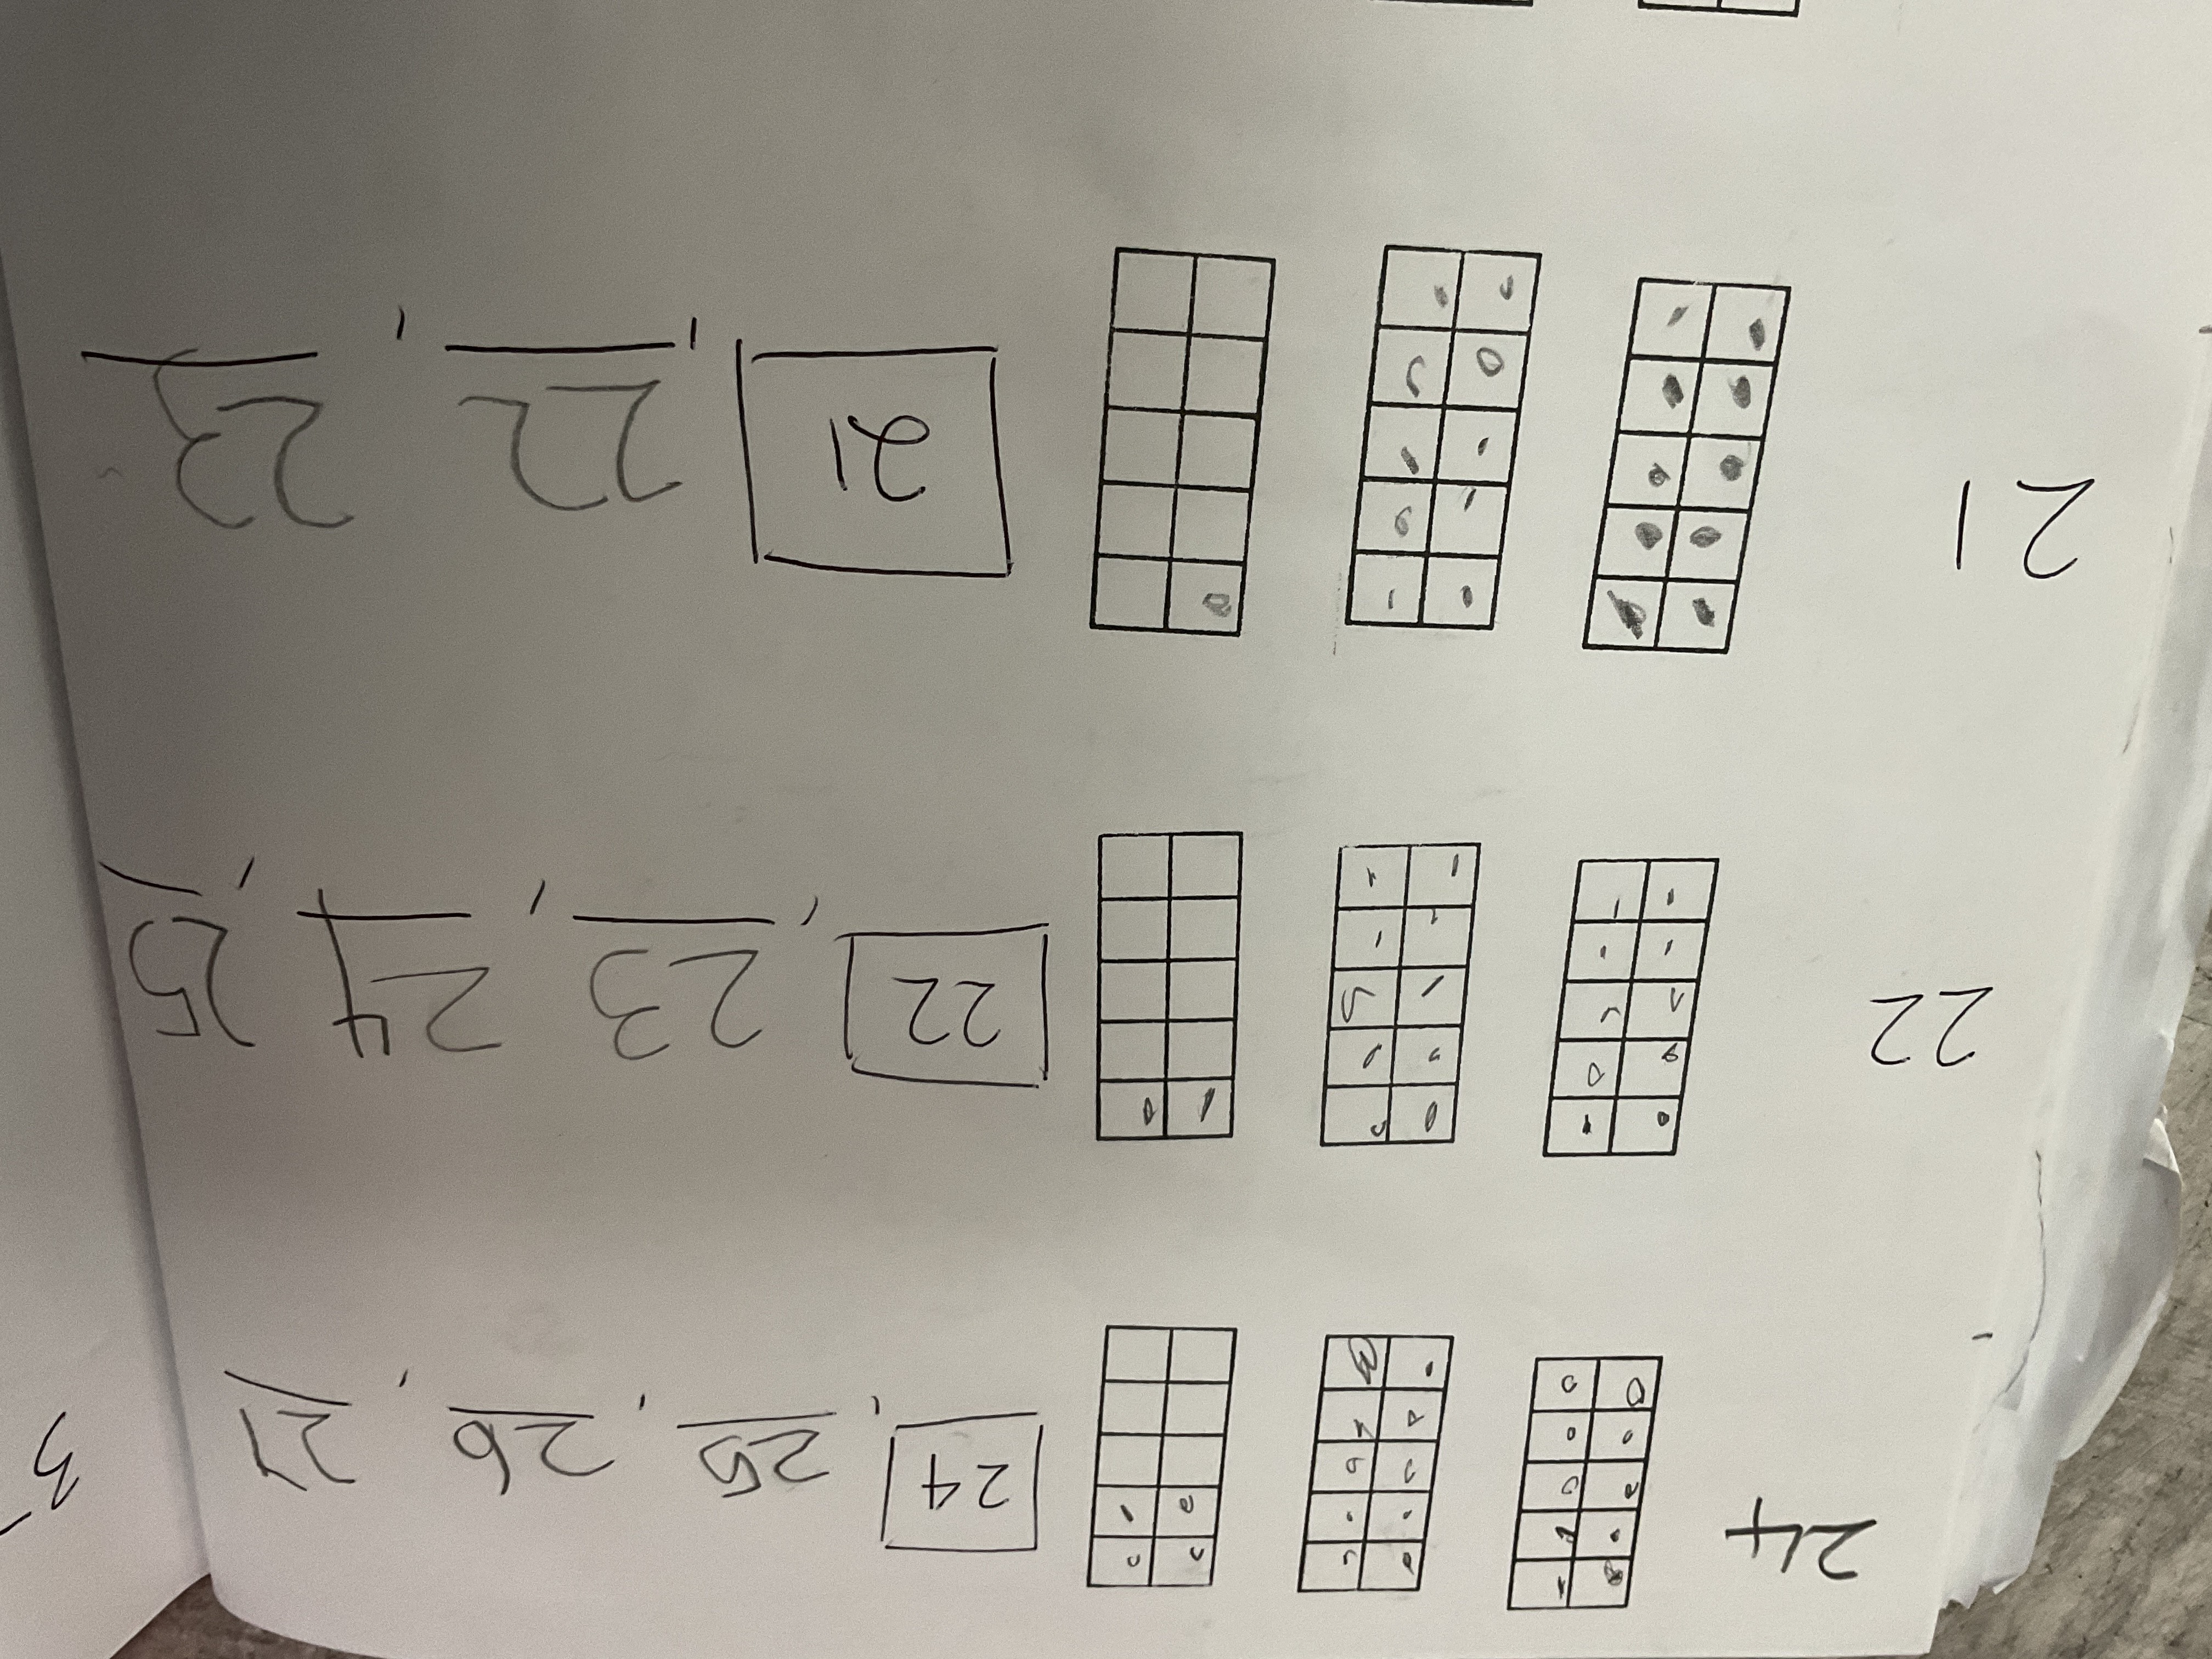 24 24, 25, 26, 27
22 22, 23, 24, 25
21 21, 22, 23